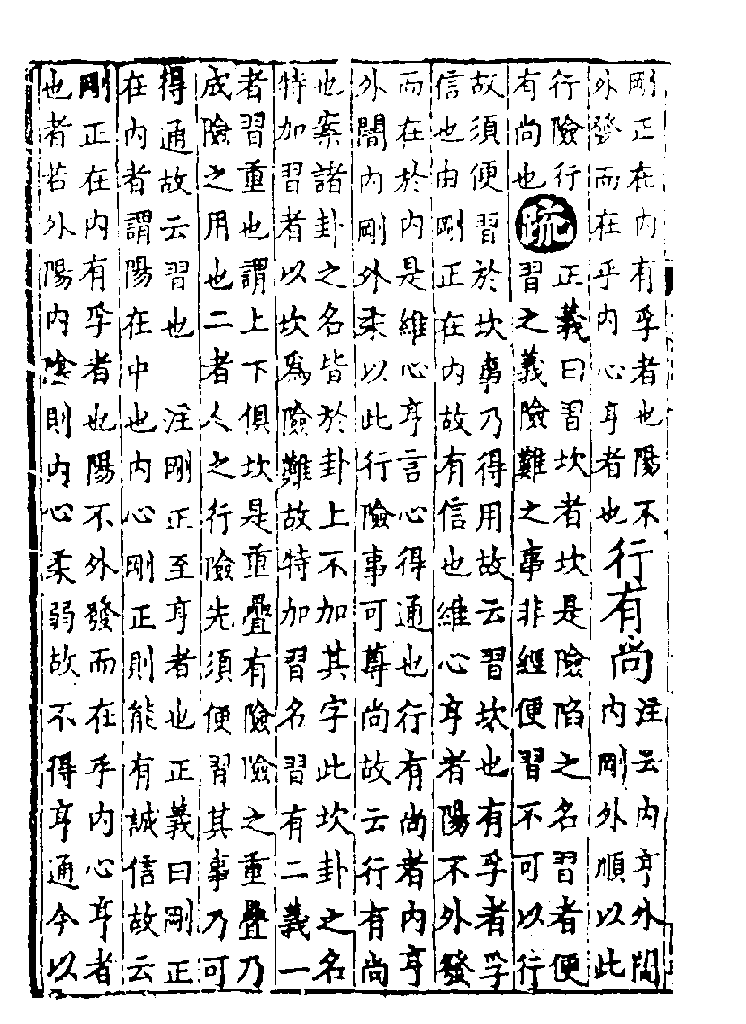 剛正在內有孚者也陽不
外發而在乎內心亨者也
行有尚
注云內亨外闇
內剛外順以此
行險行
有尚也
疏
正義曰習坎者坎是險陷之名習者便
習之義險難之事非經便習不可以行
故須便習於坎事乃得用故云習坎也有孚者孚
信也由剛正在內故有信也維心亨者陽不外發
而在於內是維心亨言心得通也行有尚者內亨
外闇內剛外柔以此行險事可尊尚故云行有尚
也案諸卦之名皆於卦上不加其字此坎卦之名
特加習者以坎爲險難故特加習名習有二義一
者習重也謂上下俱坎是重疊有險險之重疊乃
成險之用也二者人之行險先須便習其事乃可
得通故云習也　注剛正至亨者也正義曰剛正
在內者謂陽在中也內心剛正則能有誠信故云
剛正在內有孚者也陽不外發而在乎內心亨者
也者若外陽內陰則內心柔弱故不得亨通今以